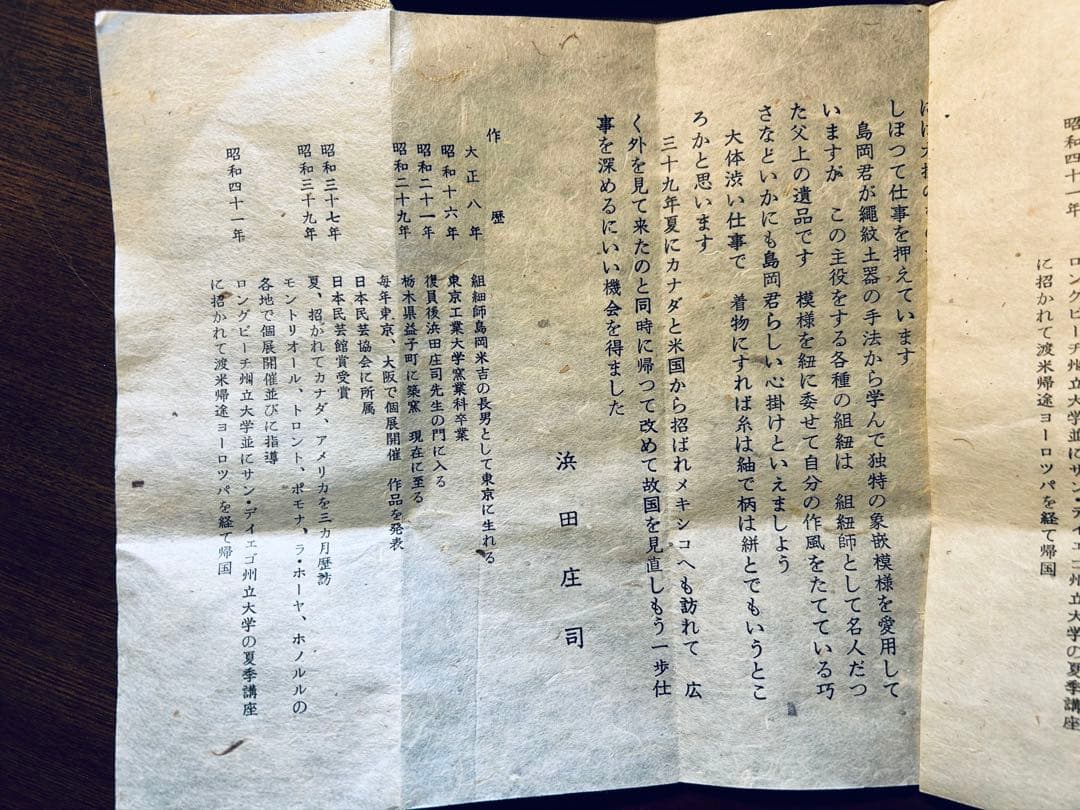 しぼつて仕事を押えています
島岡君が縄紋土器の手法から学んで独特の象嵌模様を愛用して
いますが　この主役をする各種の組紐は　組紐師として名人だつ
た父上の遺品です　模様を紐に委せて自分の作風をたてている巧
さなどいかにも島岡君らしい心掛けといえましよう
大体渋い仕事で　着物にすれば糸は紬で柄は絣とでもいうとこ
ろかと思います
三十九年夏にカナダと米国から招ばれメキシコへも訪れて　広
く外を見て来たのと同時に帰つて改めて故国を見直しもう一歩仕
事を深めるにいい機会を得ました
浜田庄司
作歴
大正八年　組紐師島岡米吉の長男として東京に生れる
昭和十六年　東京工業大学窯業科卒業
昭和二十一年　復員後浜田庄司先生の門に入る
昭和二十九年　栃木県益子町に築窯　現在に至る
毎年東京、大阪で個展開催　作品を発表
日本民芸協会に所属
昭和三十七年　日本民芸館賞受賞
昭和三十九年　夏、招かれてカナダ、アメリカを三カ月歴訪
モントリオール、トロント、ポモナ、ラ・ホーヤ、ホノルルの
各地で個展開催並びに指導
昭和四十一年　ロングビーチ州立大学並にサン・デイエゴ州立大学の夏季講座
に招かれて渡米帰途ヨーロツパを経て帰国
昭和四十一年　ロングビーチ州立大学並にサン・デイエゴ州立大学の夏季講座
に招かれて渡米帰途ヨーロツパを経て帰国